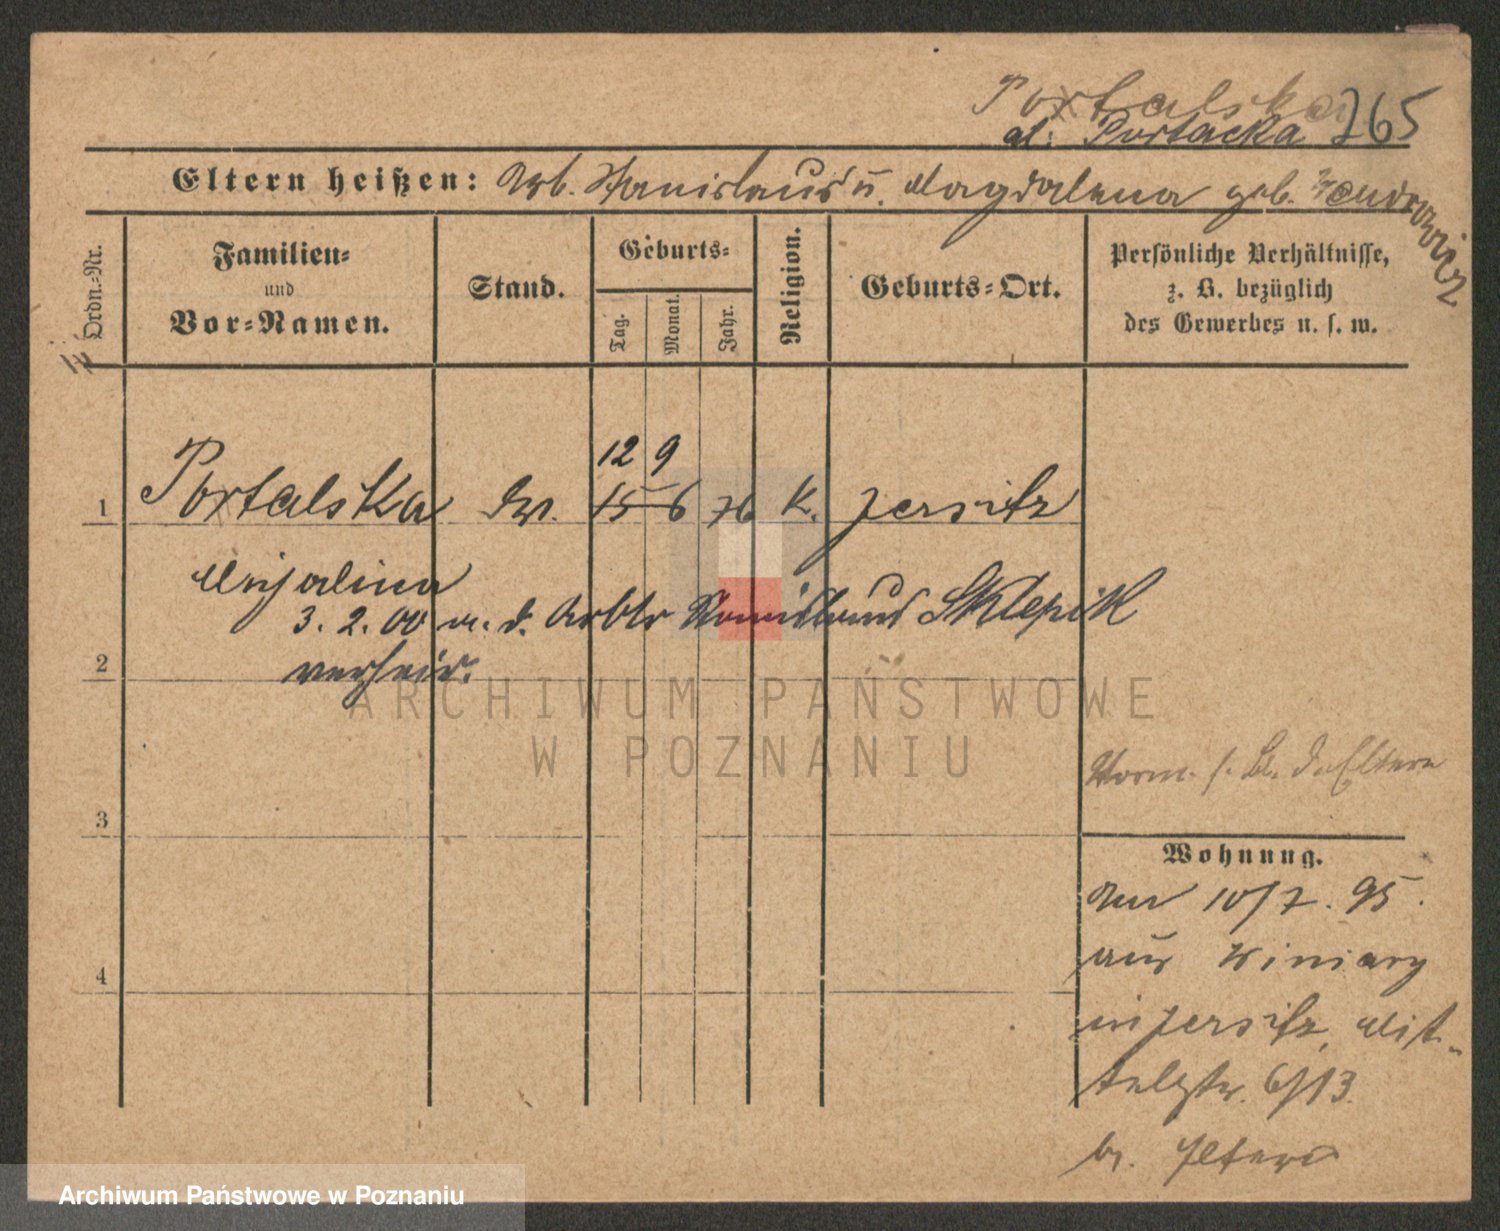 Portalska 765
al: Portacka
Eltern heißen: Arb. Stanislaus u. Magdalena geb.
Ordn.-Nr.
Familien-
und
Vor-Namen.
Stand.
Geburts-
Tag.
Monat.
Jahr.
Religion.
Geburts-Ort.
Persönliche Verhältnisse,
z. B. bezüglich
des Gewerbes u. s. w.
12 9
1 Portalska 15 6 76 K. Jersitz
3. 2. 00 m. d. Arbtr Stanislaus Sklepik
2 verheir.
ARCHIWUM PAŃSTWOWE
W POZNANIU
Vorm. s. Bl. d. Eltern
3
Wohnung.
10/7. 95.
aus Winiary
4
in Jersitz, Mit-
telstr. 6/13
b. Eltern
Archiwum Państwowe w Poznaniu